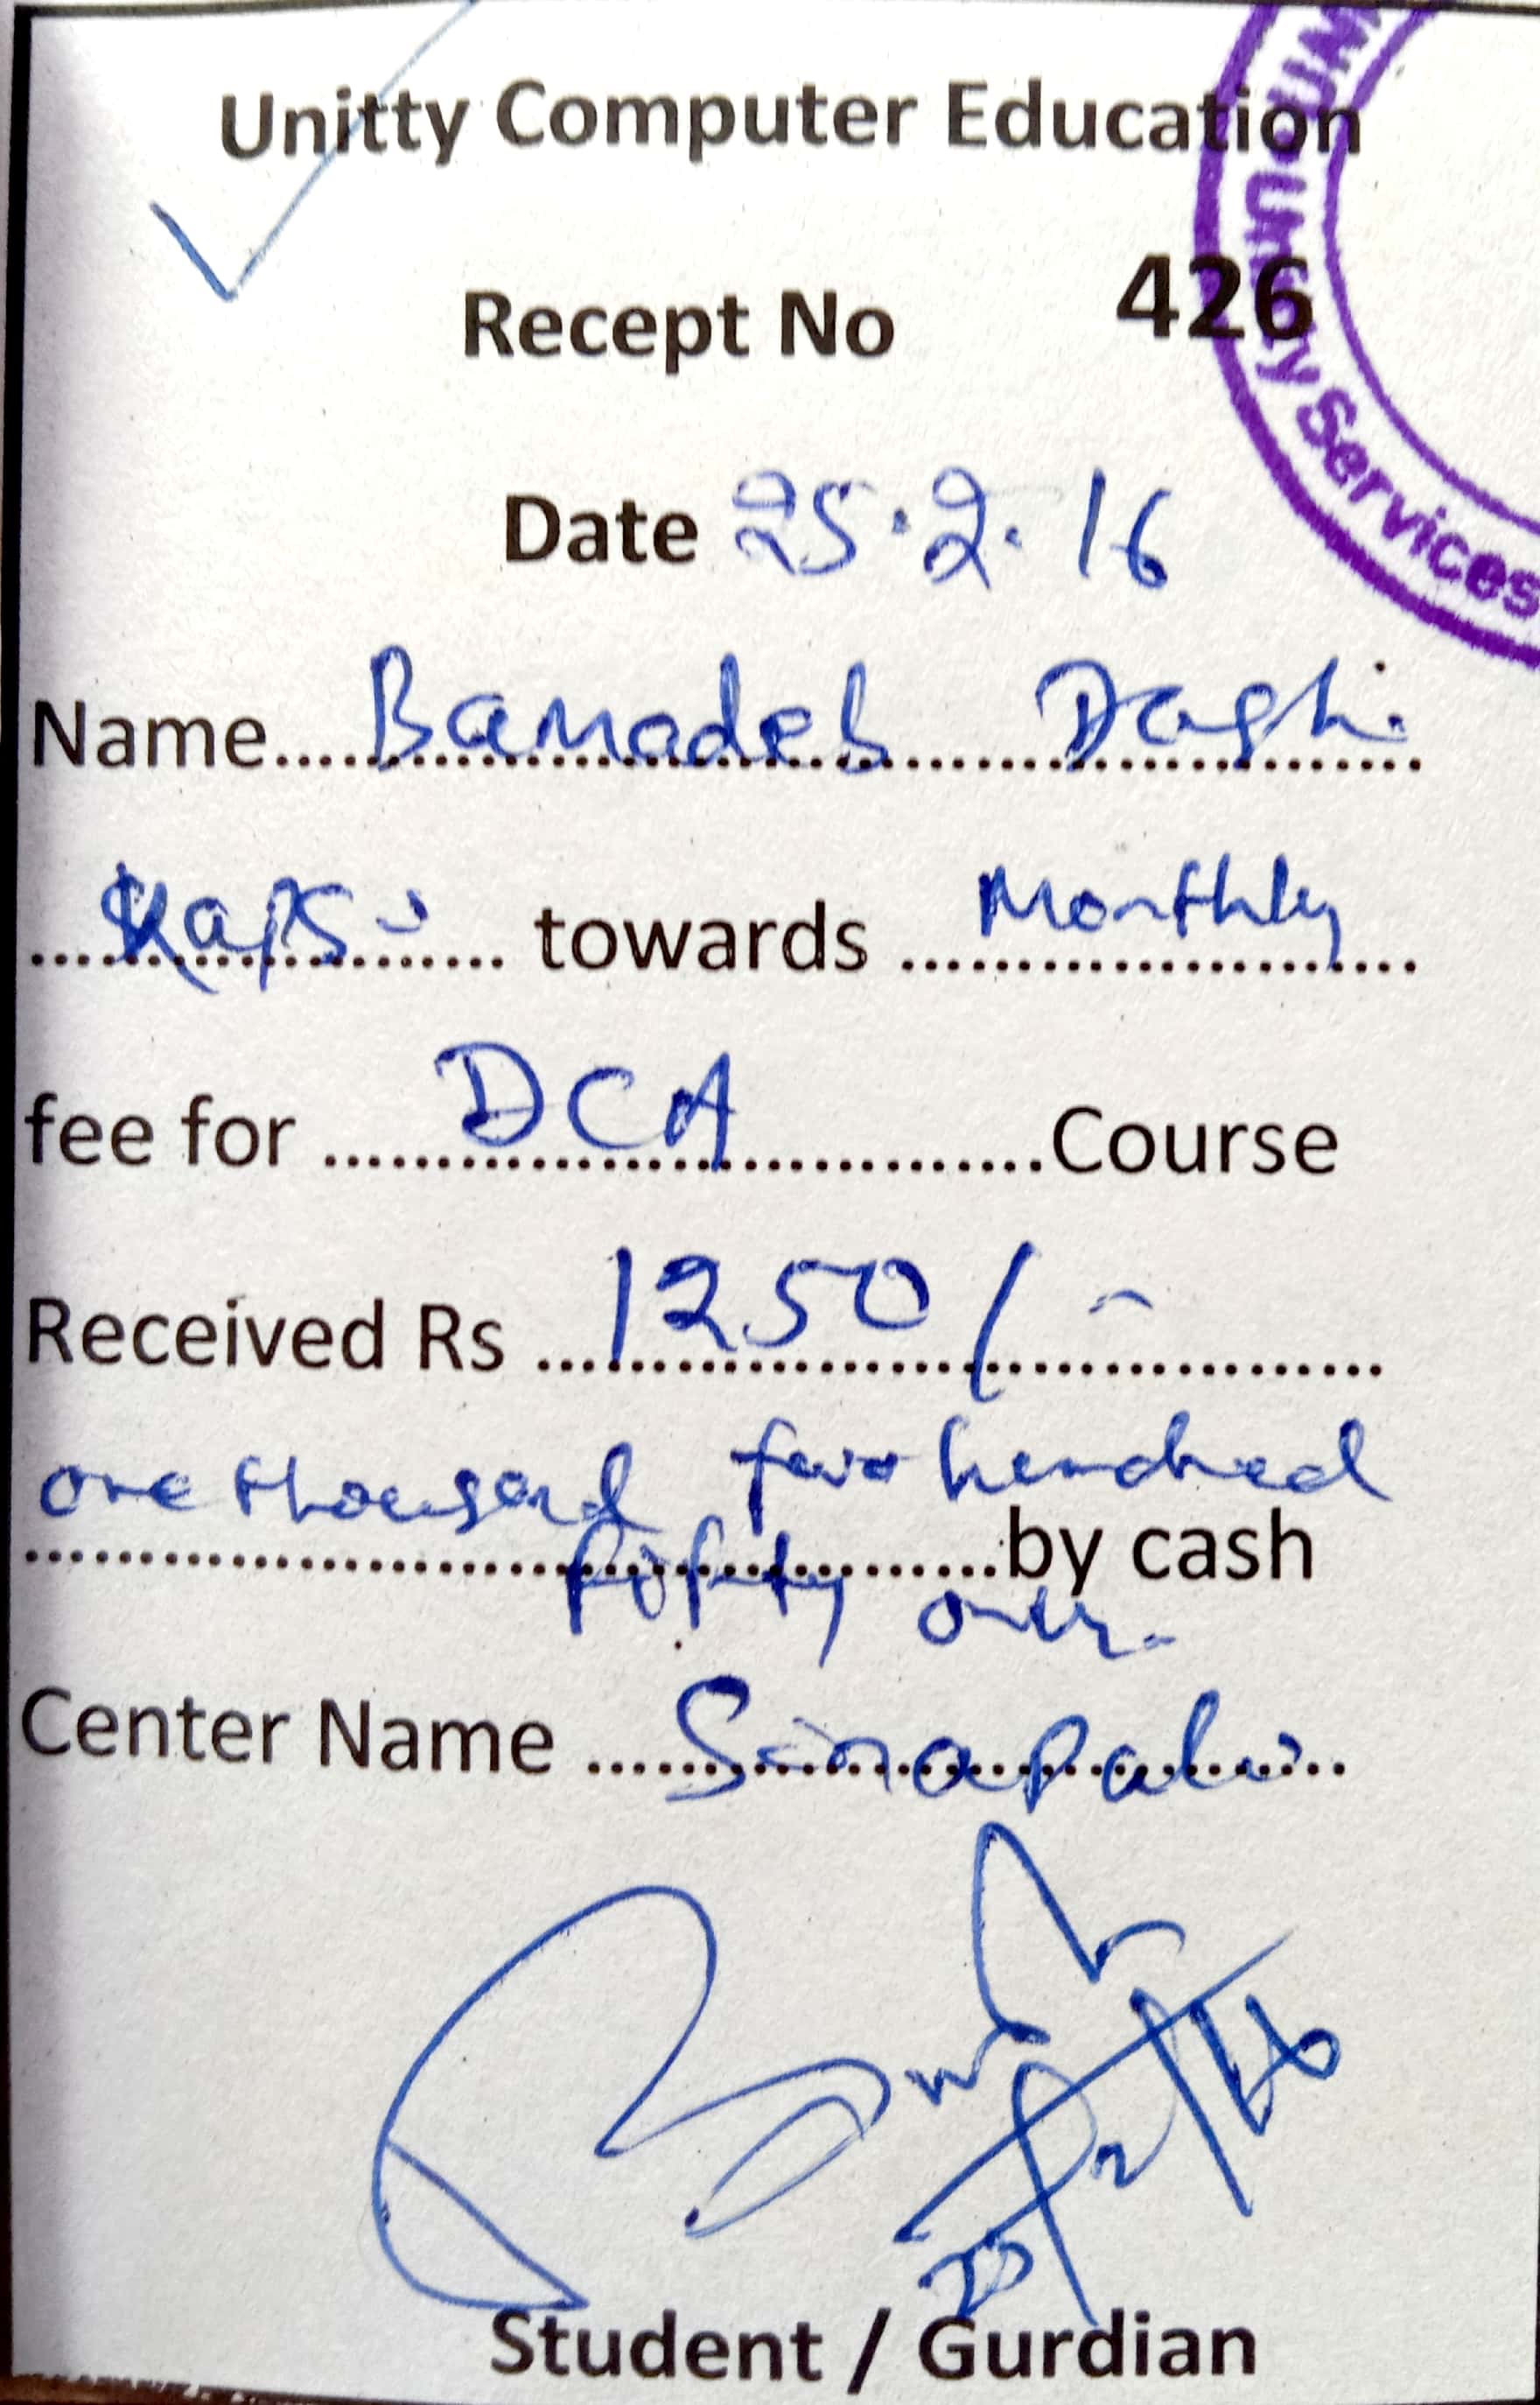 Unitty Computer Education
Recept No 426
Unitty Services
Date 25.2.16
Name.... Bamadeb Dashi
towards Monthly
fee for DCA Course
Received Rs 1250/-
one thousand two hundred
by cash
fifty only.
Center Name Sinapali
25/2/16
Student / Gurdian